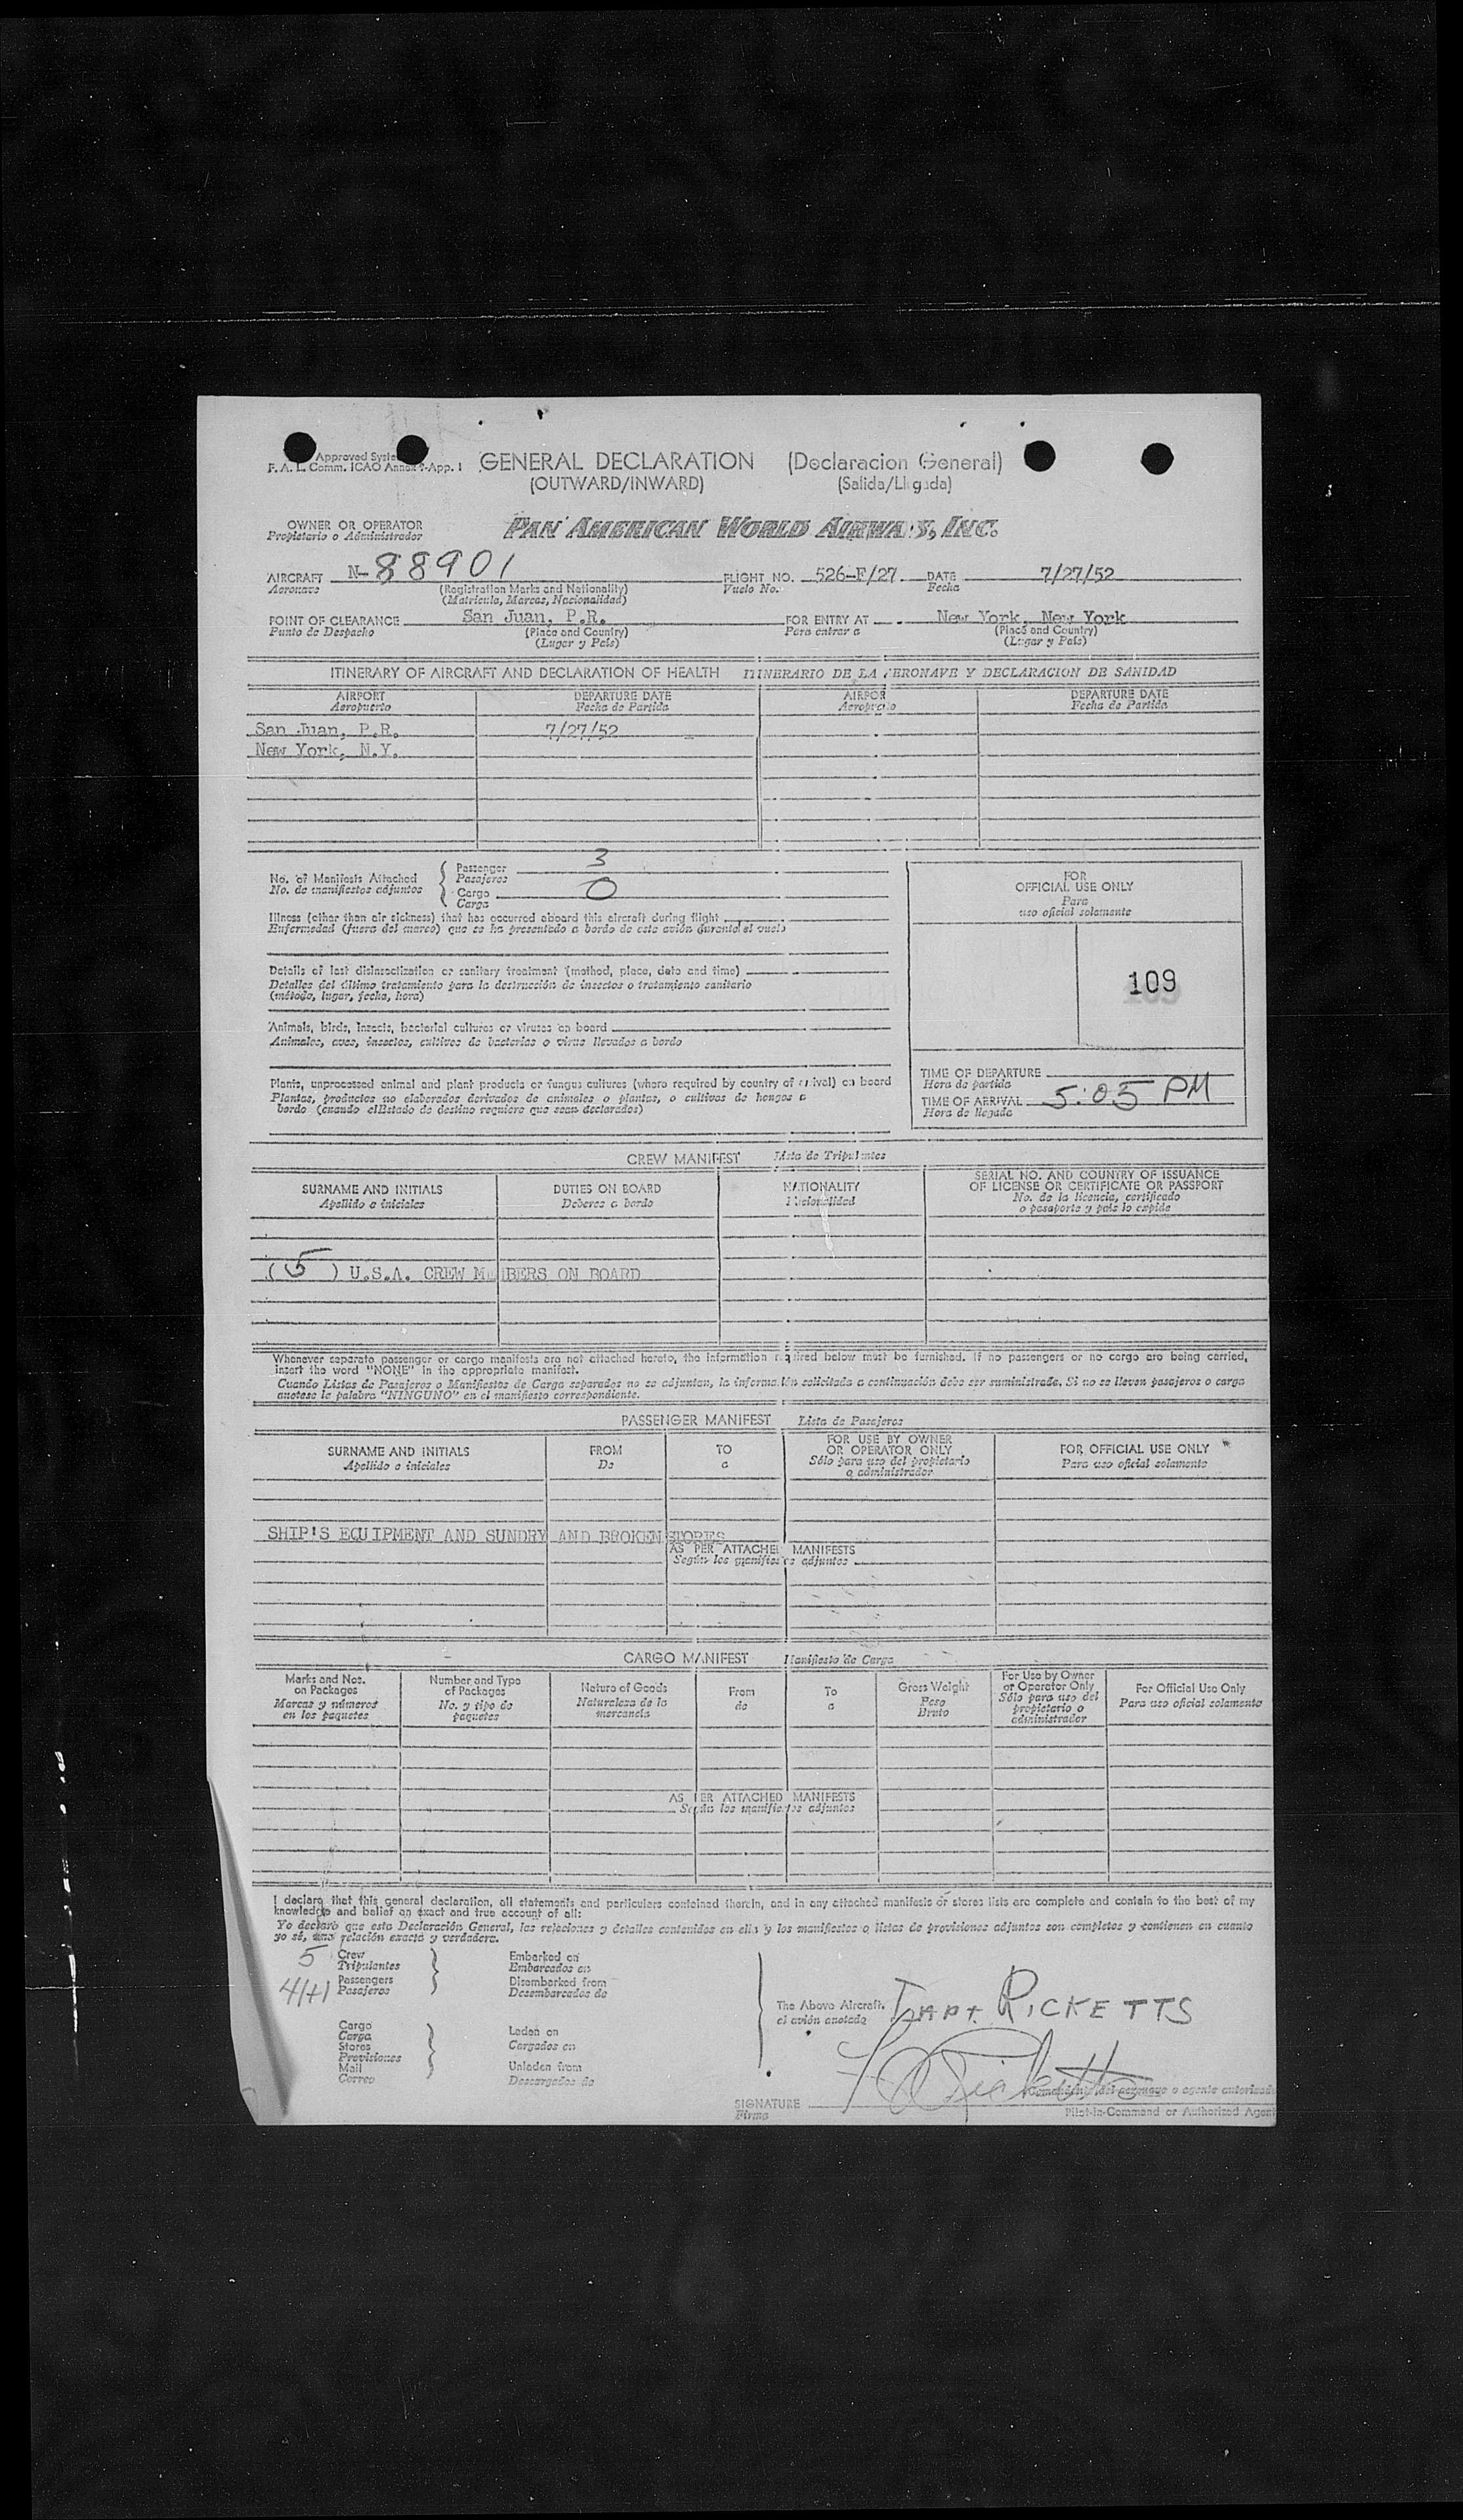 Approved System
F. A. L. Comm. ICAO Annex 9-App. 1
GENERAL DECLARATION (Declaracion General)
(OUTWARD/INWARD) (Salida/Llegada)
OWNER OR OPERATOR
Propietario o Administrador
PAN AMERICAN WORLD AIRWAYS, INC.
AIRCRAFT N-88901 FLIGHT NO. 526-F/27 DATE 7/27/52
Aeronave (Registration Marks and Nationality) Vuelo No. Fecha
(Matricula, Marcas, Nacionalidad)
POINT OF CLEARANCE San Juan, P.R. FOR ENTRY AT New York, New York
Punto de Despacho (Place and Country) Para entrar a (Place and Country)
(Lugar y Pais) (Lugar y Pais)
ITINERARY OF AIRCRAFT AND DECLARATION OF HEALTH ITINERARIO DE LA AERONAVE Y DECLARACION DE SANIDAD
AIRPORT DEPARTURE DATE AIRPORT DEPARTURE DATE
Aeropuerto Fecha de Partida Aeropuerto Fecha de Partida
San Juan, P.R. 7/27/52
New York, N.Y.
No. of Manifests Attached
No. de manifiestos adjuntos
Passenger 3
Pasajeros
Cargo 0
Carga
Illness (other than air sickness) that has occurred aboard this aircraft during flight
Enfermedad (fuera del mareo) que se ha presentado a bordo de este avión durante el vuelo
Details of last disinsectization or sanitary treatment (method, place, date and time)
Detalles del último tratamiento para la destrucción de insectos o tratamiento sanitario
(método, lugar, fecha, hora)
Animals, birds, insects, bacterial cultures or viruses on board
Animales, aves, insectos, cultivos de bacterias o virus llevados a bordo
Plants, unprocessed animal and plant products or fungus cultures (where required by country of arrival) on board
Plantas, productos no elaborados derivados de animales o plantas, o cultivos de hongos a
bordo (cuando elEstado de destino requiere que sean declarados)
FOR
OFFICIAL USE ONLY
Para
uso oficial solamente
109
TIME OF DEPARTURE
Hora de partida
TIME OF ARRIVAL 5:05 PM
Hora de llegada
CREW MANIFEST Lista de Tripulantes
SURNAME AND INITIALS DUTIES ON BOARD NATIONALITY SERIAL NO. AND COUNTRY OF ISSUANCE
OF LICENSE OR CERTIFICATE OR PASSPORT
Apellido e iniciales Deberes a bordo Nacionalidad No. de la licencia, certificado
o pasaporte y país lo expide
( 5 ) U.S.A. CREW MEMBERS ON BOARD
Whenever separate passenger or cargo manifests are not attached hereto, the information required below must be furnished. If no passengers or no cargo are being carried,
insert the word "NONE" in the appropriate manifest.
Cuando Listas de Pasajeros o Manifiestos de Carga separados no se adjuntan, la información solicitada a continuación debe ser suministrada. Si no se lleven pasajeros o carga
anotese la palabra "NINGUNO" en el manifiesto correspondiente.
PASSENGER MANIFEST Lista de Pasajeros
SURNAME AND INITIALS FROM TO FOR USE BY OWNER
OR OPERATOR ONLY FOR OFFICIAL USE ONLY
Apellido e iniciales De a Sólo para uso del propietario
o administrador Para uso oficial solamente
SHIP'S EQUIPMENT AND SUNDRY AND BROKEN STORES
AS PER ATTACHED MANIFESTS
Según los manifiestos adjuntos
CARGO MANIFEST Manifiesto de Carga
Marks and Nos.
on Packages
Marcas y números
en los paquetes
Number and Type
of Packages
No. y tipo de
paquetes
Nature of Goods
Naturaleza de la
mercancía
From
de
To
a
Gross Weight
Peso
Bruto
For Use by Owner
or Operator Only
Sólo para uso del
propietario o
administrador
For Official Use Only
Para uso oficial solamente
AS PER ATTACHED MANIFESTS
Según los manifiestos adjuntos
I declare that this general declaration, all statements and particulars contained therein, and in any attached manifests or stores lists are complete and contain to the best of my
knowledge and belief an exact and true account of all:
Yo declaro que esta Declaración General, las relaciones y detalles contenidos en ella y los manifiestos o listas de provisiones adjuntos son completos y contienen en cuanto
yo sé, una relación exacta y verdadera.
5 Crew
Tripulantes
Embarked on
Embarcados en
4/+1 Passengers
Pasajeros
Disembarked from
Desembarcados de
Cargo
Carga
Stores
Provisiones
Mail
Correo
Laden on
Cargados en
Unladen from
Descargados de
The Above Aircraft.
el avión anotado
CAPT. RICKETTS
Comandante del aeronave o agente autorizado
SIGNATURE
Firma
Pilot-in-Command or Authorized Agent